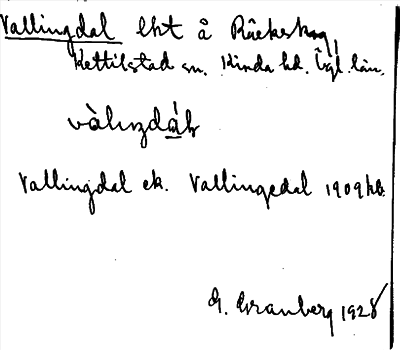 Vallingdal lht å Räckeskog,
Kettilstad sn. Kinda hd. Ögl. län.
Vallingdal ek. Vallingedal 1909 kb.
G. Granberg 1928